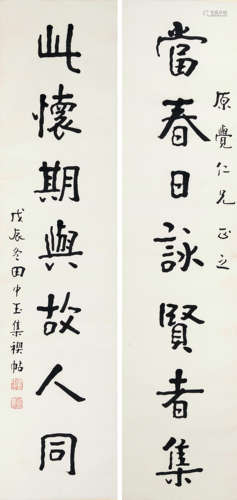 當春日詠賢者集
原覺仁兄正之
此懷期與故人同
戊辰冬田中玉集禊帖